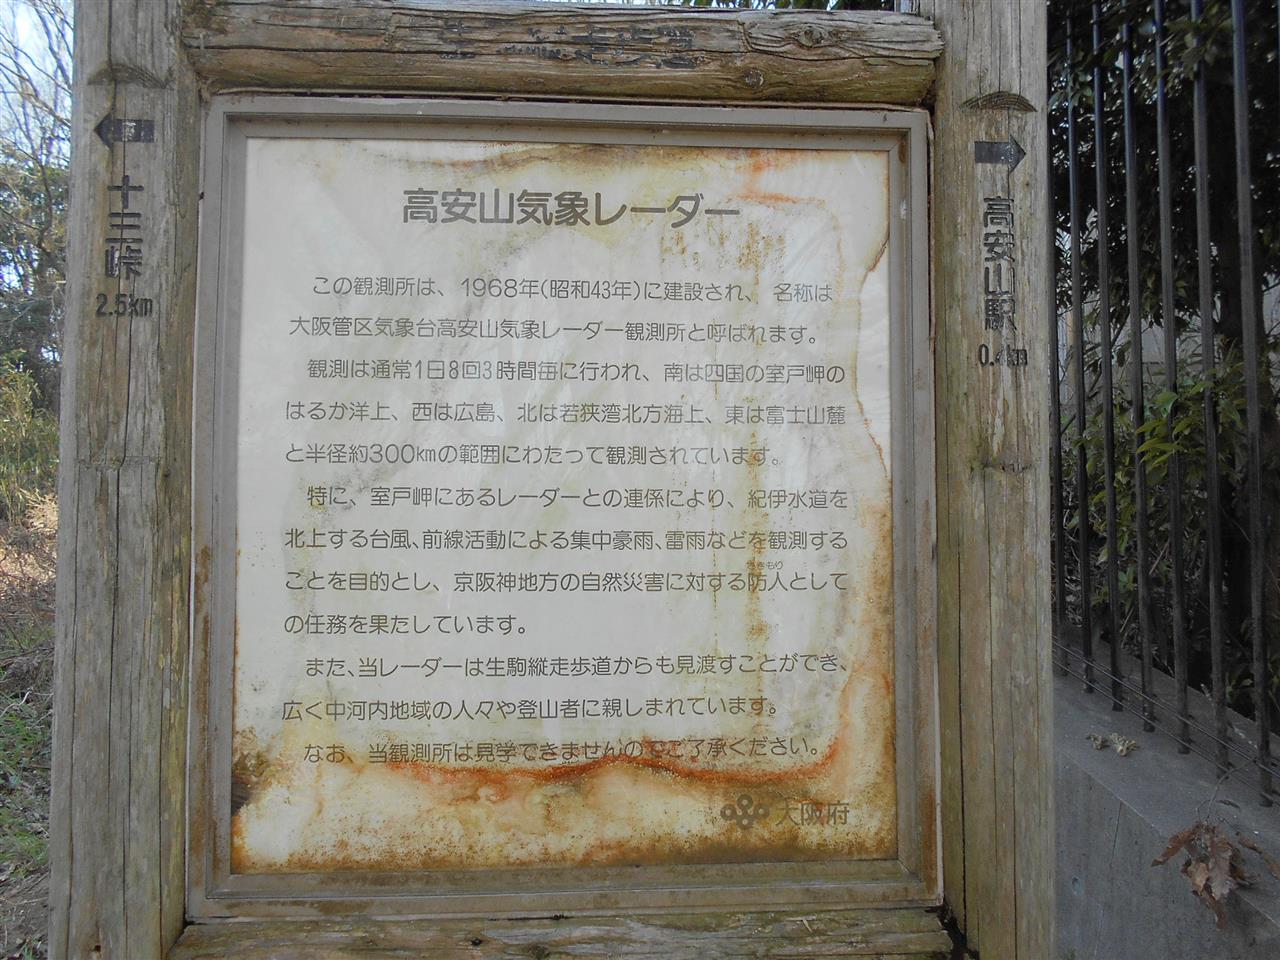 高安山気象レーダー
この観測所は、1968年(昭和43年)に建設され、名称は
大阪管区気象台高安山気象レーダー観測所と呼ばれます。
観測は通常1日8回3時間毎に行われ、南は四国の室戸岬の
はるか洋上、西は広島、北は若狭湾北方海上、東は富士山麓
と半径約300kmの範囲にわたって観測されています。
特に、室戸岬にあるレーダーとの連係により、紀伊水道を
北上する台風、前線活動による集中豪雨、雷雨などを観測する
さきもり
ことを目的とし、京阪神地方の自然災害に対する防人として
の任務を果たしています。
また、当レーダーは生駒縦走歩道からも見渡すことができ、
広く中河内地域の人々や登山者に親しまれています。
なお、当観測所は見学できませんのでご了承ください。
大阪府
十三峠
2.5km
高安山駅
0.4km